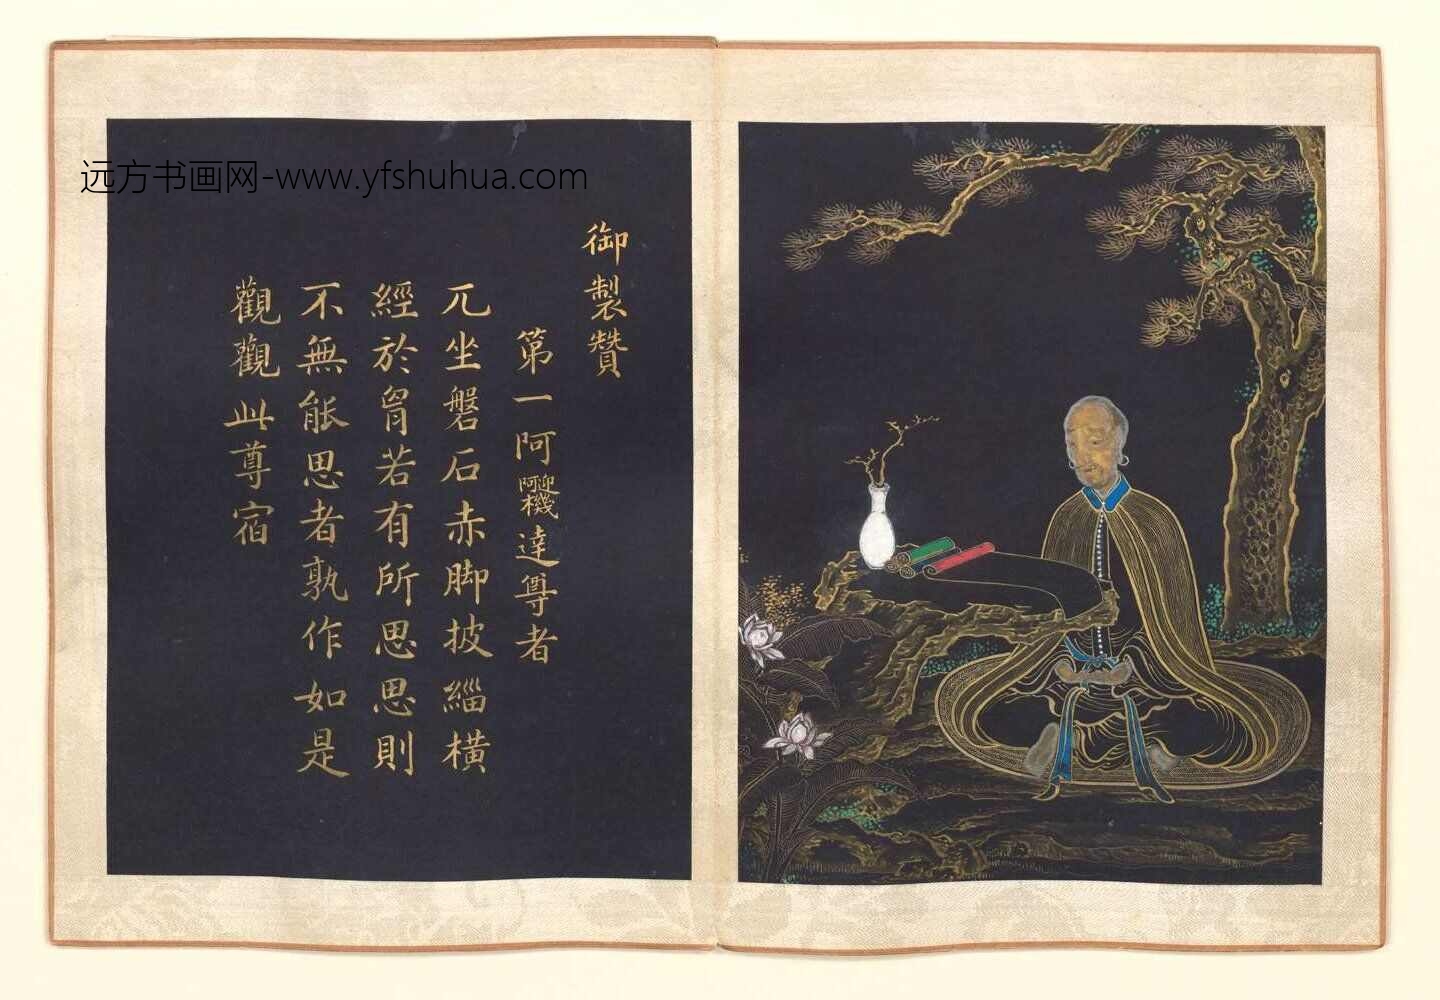 远方书画网-www.yfshuhua.com
御製贊
第一阿迎阿機達尊者
兀坐磐石赤脚披緇橫
經於膺若有所思思則
不無能思者孰作如是
觀觀此尊宿